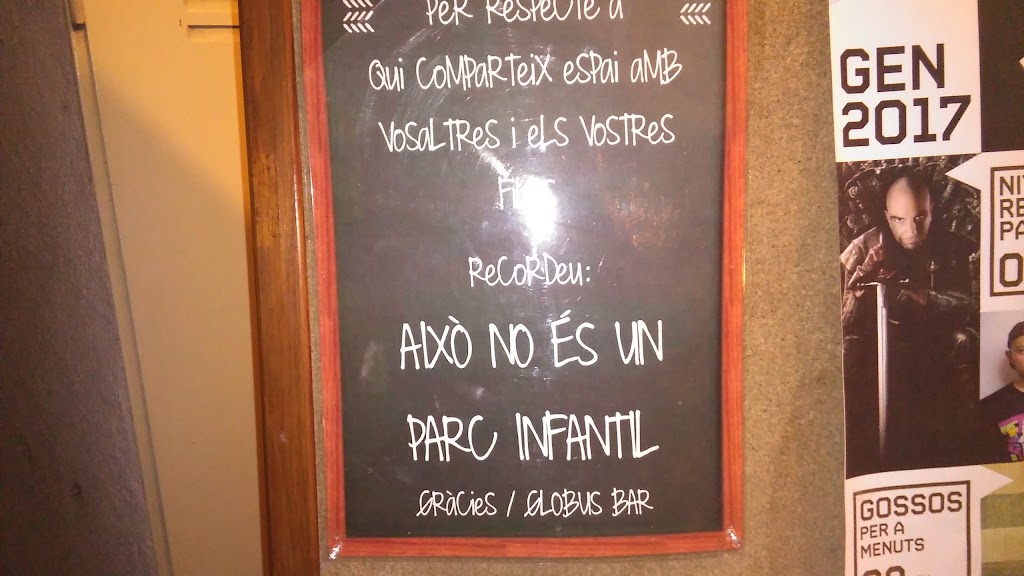 PER RESPECTE A
QUI COMPARTEIX ESPAI AMB
VOSALTRES I ELS VOSTRES
RECORDEU:
AIXÒ NO ÉS UN
PARC INFANTIL
GRÀCIES / GLOBUS BAR
GEN
2017
NIT
RE
PA
GOSSOS
PER A
MENUTS